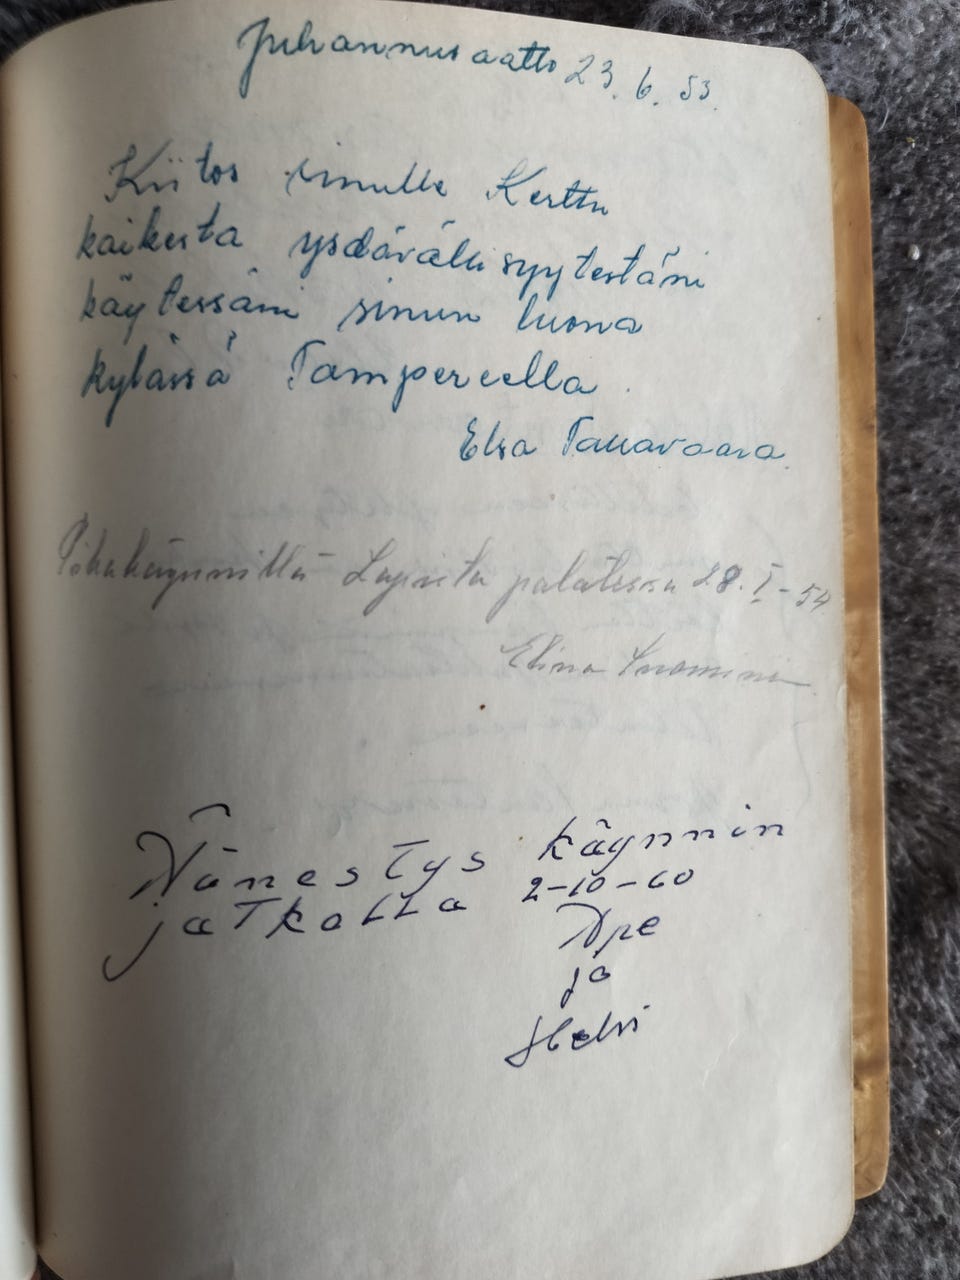 Juhannusaatto 23.6.53.
Kiitos sinulle Kerttu
kaikesta ysdävällisyytestäni
käytessäni sinun luona
kylässä Tampereella.
Elsa
Pikakäynnillä Lapista palatessa 28.I-54
Elina Suominen
Äänestys käynnin
jatkolla 2-10-60
Ape
ja
Helvi